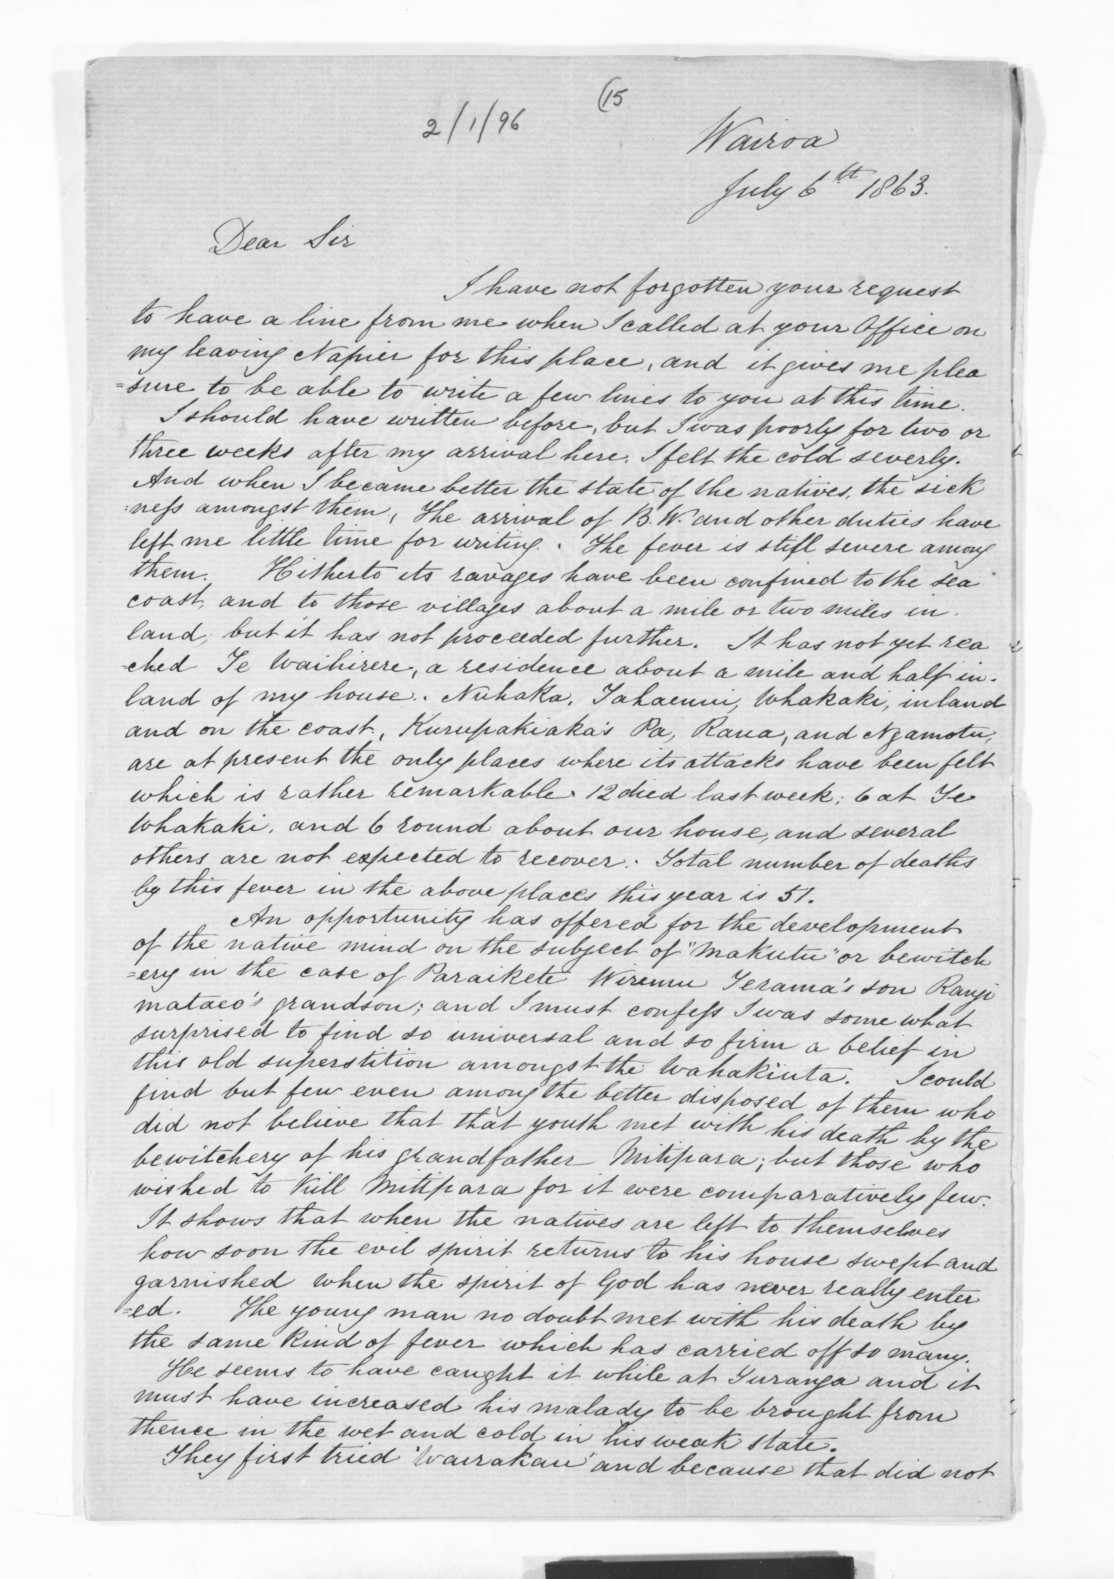 (15
2/1/96
Wairoa
July 6th 1863.
Dear Sir
I have not forgotten your request
to have a line from me when I called at your Office on
my leaving Napier for this place, and it gives me plea
=sure to be able to write a few lines to you at this time.
I should have written before, but I was poorly for two or
three weeks after my arrival here. I felt the cold severly.
And when I became better the state of the natives, the sick
=ness amongst them, The arrival of B.W. and other duties have
left me little time for writing. The fever is still severe among
them. Hitherto its ravages have been confined to the sea
coast, and to those villages about a mile or two miles in
land; but it has not proceeded further. It has not yet rea
=ched Te Waihirere, a residence about a mile and half in-
land of my house. Nuhaka, Tahaenui, Whakaki, inland
and on the coast, Kurupakiaka's Pa, Raua, and Ngamotu,
are at present the only places where its attacks have been felt
which is rather remarkable. 12 died last week; 6 at Te
Whakaki, and 6 round about our house, and several
others are not expected to recover. Total number of deaths
by this fever in the above places this year is 51.
An opportunity has offered for the development
of the native mind on the subject of "Makutu" or bewitch
=ery in the case of Paraikete Wiremu Terama's son Rangi
mataeo's grandson; and I must confess I was some what
surprised to find so universal and so firm a belief in
this old superstition amongst the Wahakiuta. I could
find but few even among the better disposed of them who
did not believe that that youth met with his death by the
bewitchery of his grandfather Mitipara; but those who
wished to kill Mitipara for it were comparatively few.
It shows that when the natives are left to themselves
how soon the evil spirit returns to his house swept and
garnished when the spirit of God has never really enter
=ed. The young man no doubt met with his death by
the same kind of fever which has carried off so many.
He seems to have caught it while at Turanga and it
must have increased his malady to be brought from
thence in the wet and cold in his weak state.
They first tried 'Wairakau' and because that did not